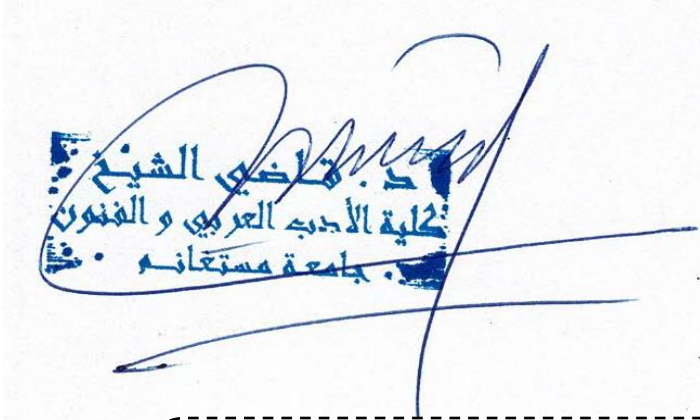 د. قاضي الشيخ
كلية الأدب العربي و الفنون
. جامعة مستغانم .